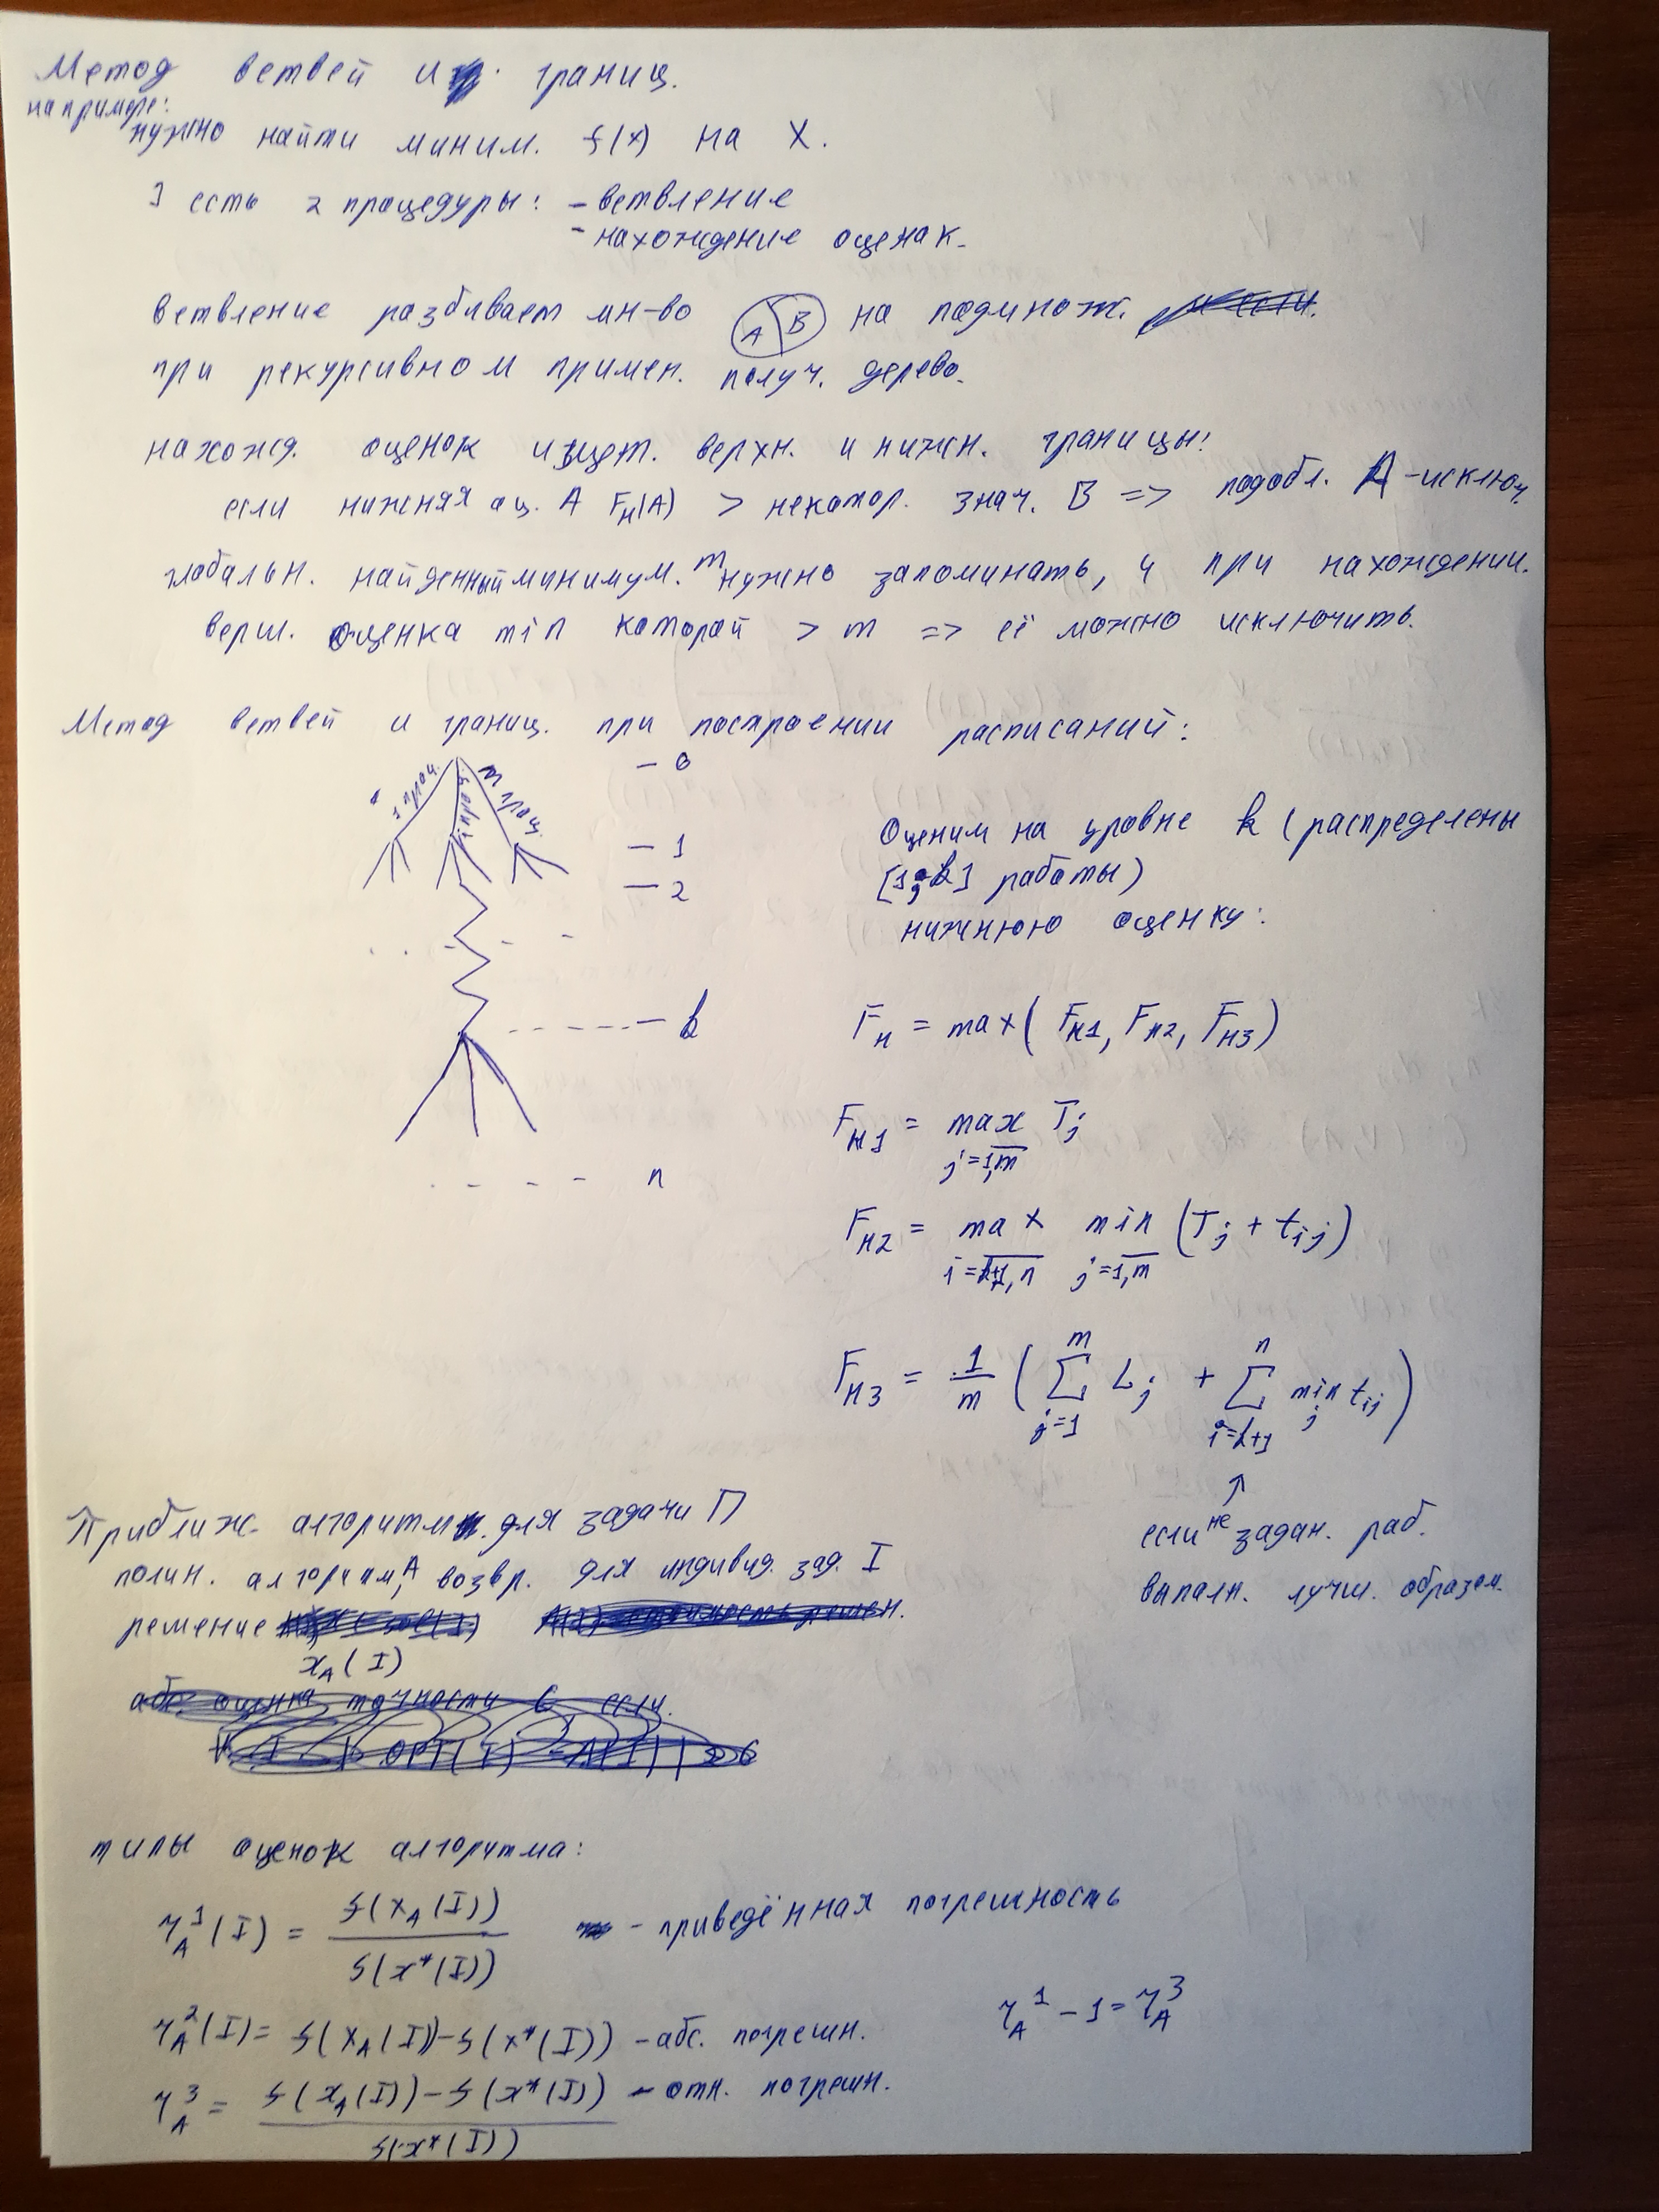 Метод ветвей и границ.
например:
нужно найти миним. f(x) на X.
] есть 2 процедуры: - ветвление
- нахождение оценак.
ветвление разбивает мн-во A B на подмнож.
при рекурсивном примен. получ. дерево.
нахожд. оценок ищет. верхн. и нижн. границы:
если нижняя оц. A Fн(A) > некотор. знач. B => подобл. A - исключ.
глобальн. найденный минимум. m нужно запоминать, и при нахождении.
верш. оценка min которой > m => её можно исключить.
Метод ветвей и границ. при построении расписаний:
1 проц. проц. m проц.
- 0
- 1
- 2
- k
n
Оценим на уровне k (распределены
[1; k] работы)
нижнюю оценку:
Fн = max( Fн1, Fн2, Fн3)
Fн1 = max Tj
j=1,m
Fн2 = max min (Tj + tij)
i=k+1,n j=1,m
Fн3 = 1/m ( ∑ j=1 m Lj + ∑ i=k+1 n min j tij )
↑
если не задан. раб.
выполн. лучш. образом.
Приближ. алгоритм. для задачи П
полин. алгоритм, A возвр. для индивид. зад. I
решение
xA(I)
абс. оценка точности C если.
OPT(I) - A(I)
типы оценок алгоритма:
η¹A(I) = f(xA(I)) / f(x*(I)) - приведённая погрешность
η²A(I) = f(xA(I)) - f(x*(I)) - абс. погрешн.
η¹A - 1 = η³A
η³A = f(xA(I)) - f(x*(I)) / f(x*(I)) - отн. погрешн.